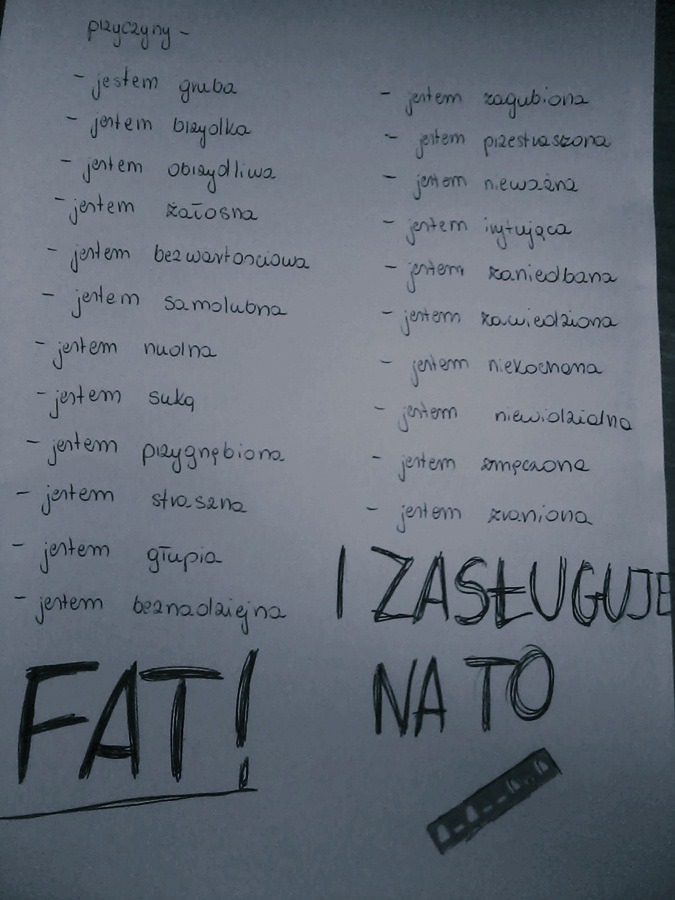 przyczyny -
- jestem gruba
- jestem brzydka
- jestem obrzydliwa
- jestem żałosna
- jestem bezwartosciowa
- jestem samolubna
- jestem nudna
- jestem suką
- jestem przygnębiona
- jestem straszna
- jestem głupia
- jestem beznadziejna
FAT!
- jestem zagubiona
- jestem przestraszona
- jestem nieważna
- jestem irytująca
- jestem zaniedbana
- jestem zawiedziona
- jestem niekochana
- jestem niewidzialna
- jestem zmęczona
- jestem zraniona
I ZASŁUGUJE
NA TO